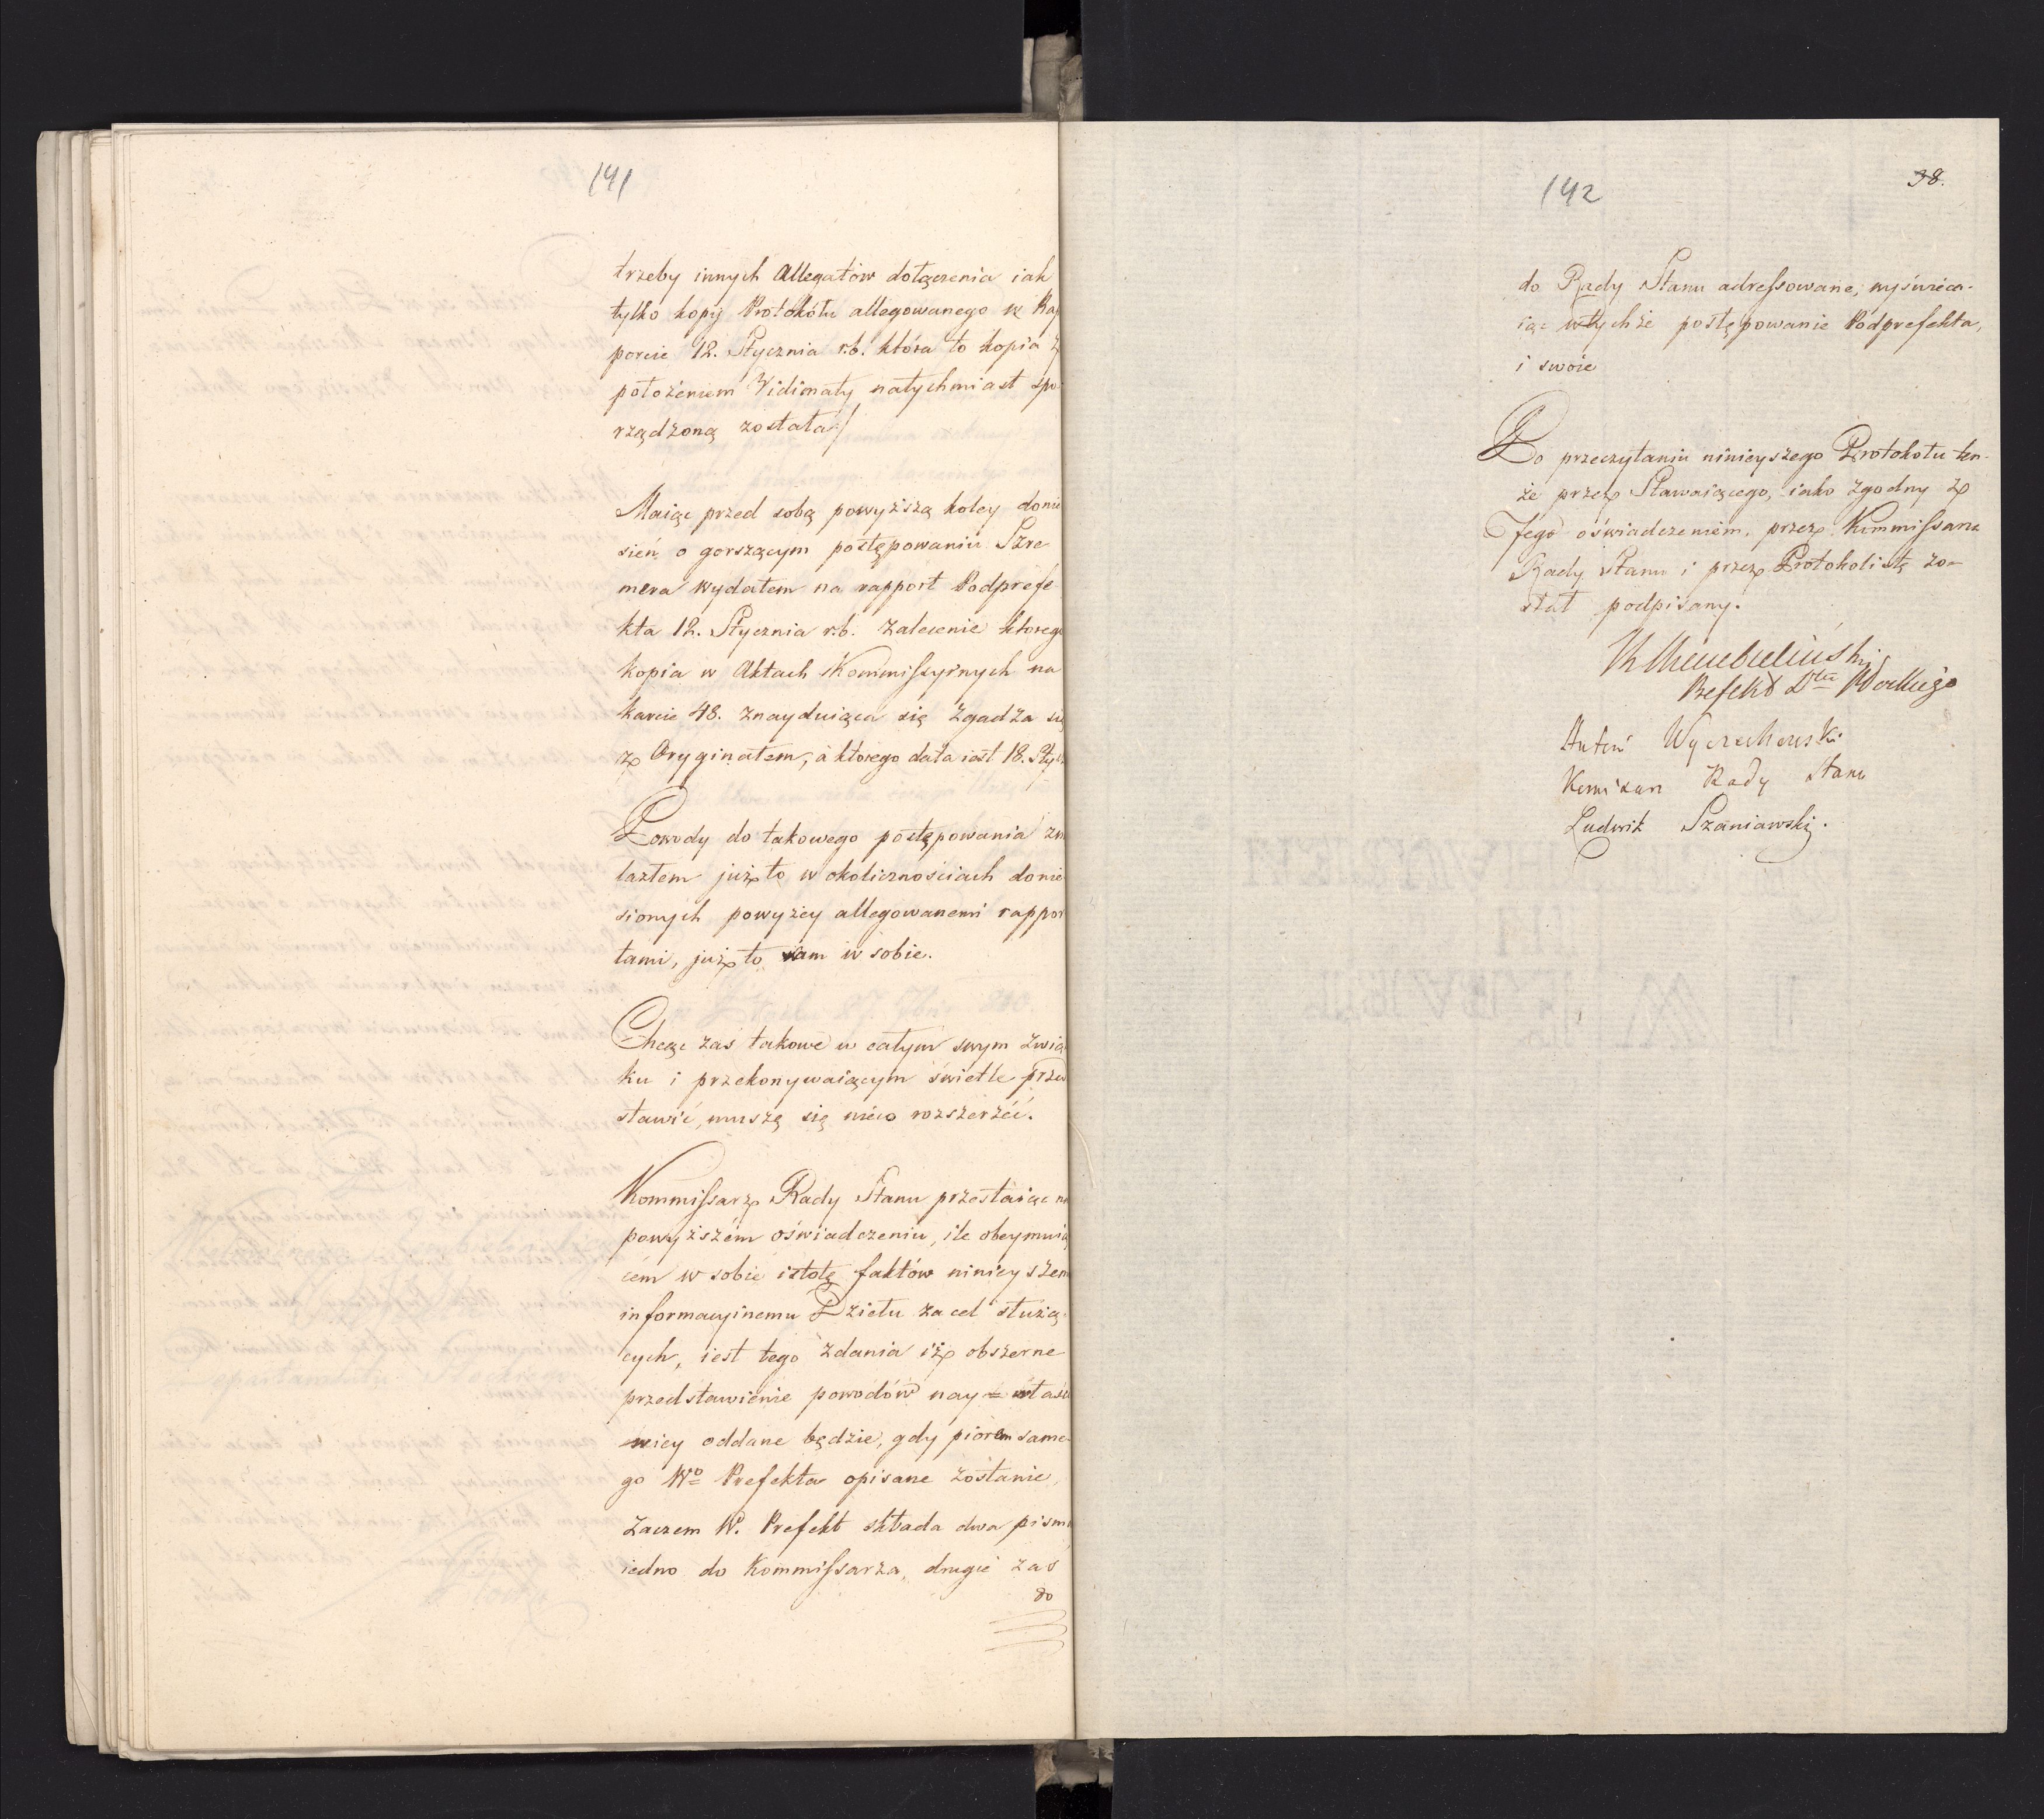 141
trzeby innych Allegatów dołączenia iak
tylko kopij Protokółu allegowanego w Rap
porcie 12. Stycznia r.b. która to kopia z
położeniem Vidimaty natychmiast spo
rządzoną została/
Maiąc przed sobą powyższą koley donie
sień o gorszącym postępowaniu Szre
mera wydałem na rapport Podprefe
kta 12. Stycznia r.b. zalecenie którego
kopia w Aktach Kommissyinych na
karcie 48. znayduiąca się zgadza się
z Oryginałem, a którego data iest 18. Sty
Powody do takowego postępowania zna
lazłem już to w okolicznościach donie
sionych powyżey allegowanemi rappor
tami, już to sam w sobie.
Chcąc zaś takowe w całym swym związ
ku i przekonywaiącym świetle przed
stawić, muszę się nieco rozszerzéć.
Kommissarz Rady Stanu przestaiąc na
powyższém oświadczeniu, ile obeymuią
cém w sobie istotę faktów ninieyszem
informacyinemu Dziełu za cel służą-
cych, iest tego zdania iż obszerne
przedstawienie powodów nay = właści
wiey oddane będzie, gdy piórem same-
go Wo Prefekta opisane zostanie,
Zaczem W. Prefekt składa dwa pisma
iedno do Kommissarza, drugie zaś
do
142
38.
do Rady Stanu adressowane, wyświeca-
iąc w tychże postępowanie Podprefekta,
i swoie
Po przeczytaniu ninieyszego Protokołu ten-
że przez Stawaiącego, iako zgodny z
Jego oświadczeniem, przez Kommissarza
Rady Stanu i przez Protokolistę zo-
stał podpisany.
Prefekt Dtu Płockiego
Antoni Wyczechowski
Komisarz Rady Stanu
Ludwik Szaniawski.